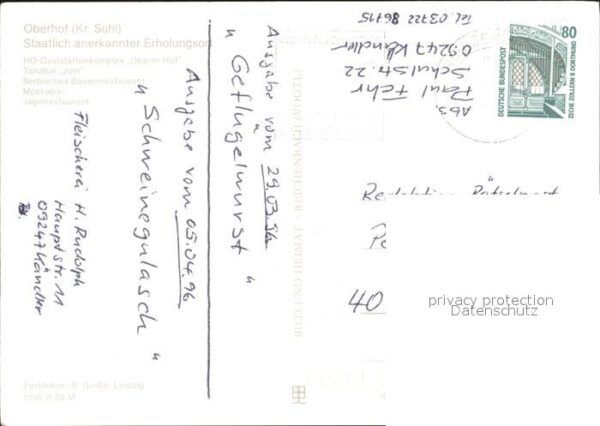 Oberhof (Kr. Suhl)
Staatlich anerkannter Erholungsort
HO-Gaststättenkomplex „Oberer Hof"
Tanzbar „Joel"
Serbisches Bauernrestaurant
Mokkabar
Jägerrestaurant
Fleischerei H. Rudolph
Hauptstr. 11
09247 Kändler
Ausgabe vom 05.04.96
„Schweinegulasch"
Ausgabe vom 29.03.96
„Geflügelwurst"
BILD UND HEIMAT · REICHENBACH (VOGTL)
Farbfotos: B. Große, Leipzig
DDR 0,20 M
Abs.
Paul Fehr
Schulstr. 22
09247 Kändler
Tel. 03722 86715
DEUTSCHE BUNDESPOST
80
ZECHE ZOLLERN II DORTMUND
40
privacy protection
Datenschutz